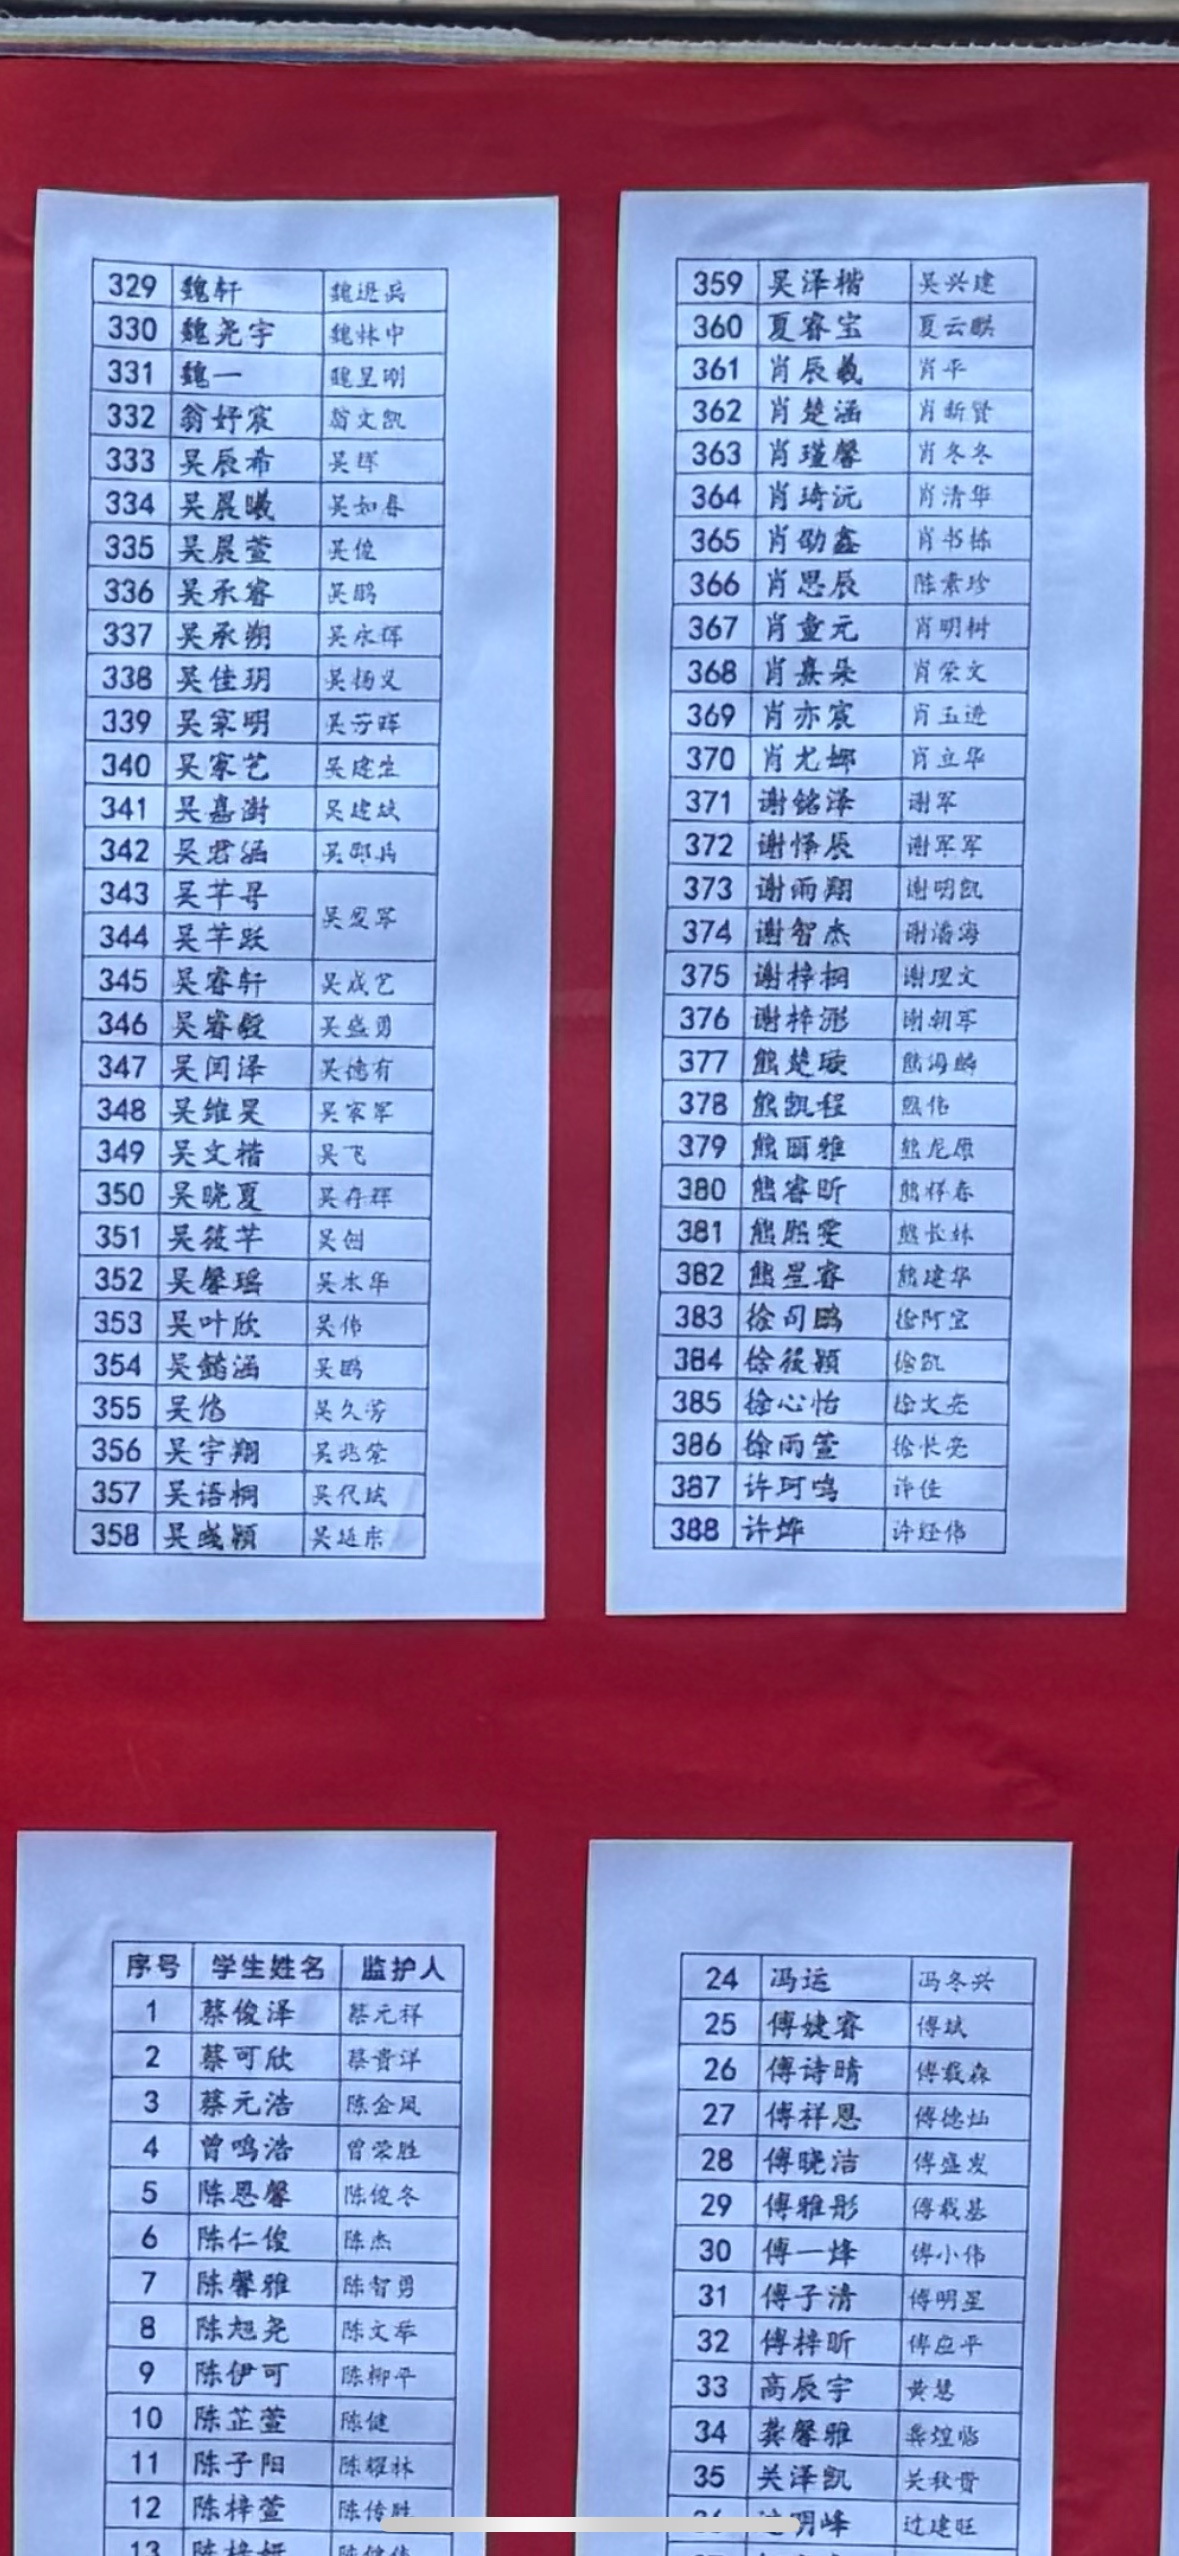 329 魏轩
330 魏尧宇 魏林中
331 魏一 魏星刚
332 翁妤宸 翁文凯
333 吴辰希 吴辉
334 吴晨曦 吴如春
335 吴晨萱 吴俊
336 吴承睿 吴鹏
337 吴承翔 吴永辉
338 吴佳玥 吴扬义
339 吴家明 吴芳晖
340 吴家艺 吴建生
341 吴嘉澍 吴建斌
342 吴君涵
343 吴芊寻
344 吴芊跃
345 吴睿轩 吴成艺
346 吴睿毅 吴盛勇
347 吴闰泽 吴德有
348 吴维昊 吴家军
349 吴文楷 吴飞
350 吴晓夏 吴存辉
351 吴筱芊 吴创
352 吴馨瑶 吴木华
353 吴叶欣 吴伟
354 吴懿涵 吴鹏
355 吴悠 吴久芳
356 吴宇翔 吴兆荣
357 吴语桐 吴代斌
358 吴彧颖 吴延东
359 吴泽楷 吴兴建
360 夏睿宝 夏云麒
361 肖辰羲 肖平
362 肖楚涵 肖新贤
363 肖瑾馨 肖冬冬
364 肖琦沅 肖清华
365 肖劭鑫 肖书栋
366 肖思辰 陈素珍
367 肖童元 肖明树
368 肖熹泉 肖荣文
369 肖亦宸 肖玉进
370 肖尤娜 肖立华
371 谢铭泽 谢军
372 谢怿辰 谢军军
373 谢雨翔 谢明凯
374 谢智杰 谢潘海
375 谢梓桐 谢理文
376 谢梓涁 谢朝军
377 熊楚璇 熊海麟
378 熊凯程 熊伟
379 熊丽雅 熊龙原
380 熊睿昕 熊祥春
381 熊熙雯 熊长林
382 熊星睿 熊建华
383 徐司鹏 徐阿宝
384 徐筱颖 徐凯
385 徐心怡 徐文亮
386 徐雨萱 徐长亮
387 许珂鸣 许佳
388 许烨 许经伟
序号 学生姓名 监护人
1 蔡俊泽 蔡元祥
2 蔡可欣 蔡贵洋
3 蔡元浩 陈金凤
4 曾鸣浩 曾荣胜
5 陈恩馨 陈俊冬
6 陈仁俊 陈杰
7 陈馨雅 陈智勇
8 陈旭尧 陈文举
9 陈伊可 陈柳平
10 陈芷萱 陈健
11 陈子阳 陈耀林
12 陈梓萱 陈传胜
13 陈梓妍
24 冯运 冯冬兴
25 傅婕睿 傅斌
26 傅诗晴 傅载森
27 傅祥恩 傅德灿
28 傅晓洁 傅盛发
29 傅雅彤 傅载基
30 傅一烽 傅小伟
31 傅子清 傅明星
32 傅梓昕 傅应平
33 高辰宇 黄慧
34 龚馨雅 龚煌临
35 关泽凯 关秋晋
36 过明峰 过建旺